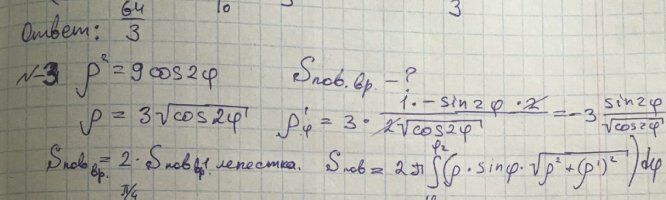 Ответ: 64/3
N-3 ρ² = 9 cos2φ Sпов.вр. - ?
ρ = 3√cos2φ ρ'φ = 3 · (1 · -sin2φ · 2)/(2√cos2φ) = -3 sin2φ/√cos2φ
Sпов.вр. = 2 · Sпов.вр.1 лепестка. Sпов = 2π∫(ρ · sinφ · √ρ²+(ρ')²)dφ
π/4